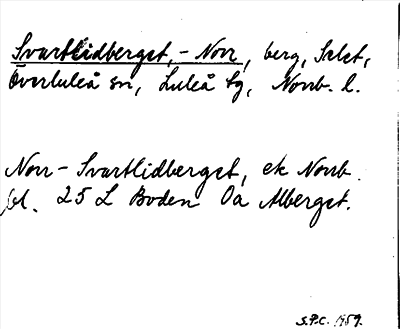 Svartlidberget, - Norr, berg,
Överluleå sn, Luleå tg, Norrb. l.
Norr-Svartlidberget, ek Norrb.
bl. 25 L Boden Oa Alberget.
S.P.C. 1959.